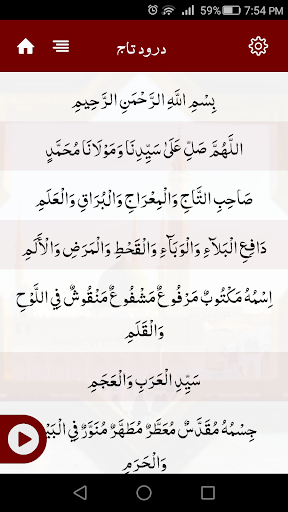 59% 7:54 PM
درود تاج
بِسْمِ اللَّهِ الرَّحْمَنِ الرَّحِيمِ
اللَّهُمَّ صَلِّ عَلَىٰ سَيِّدِنَا وَمَوْلَانَا مُحَمَّدٍ
صَاحِبِ التَّاجِ وَالْمِعْرَاجِ وَالْبُرَاقِ وَالْعَلَمِ
دَافِعِ الْبَلَآءِ وَالْوَبَآءِ وَالْقَحْطِ وَالْمَرَضِ وَالْأَلَمِ
اِسْمُهُ مَكْتُوبٌ مَرْفُوعٌ مَشْفُوعٌ مَنْقُوشٌ فِي اللَّوْحِ
وَالْقَلَمِ
سَيِّدِ الْعَرَبِ وَالْعَجَمِ
جِسْمُهُ مُقَدَّسٌ مُعَطَّرٌ مُطَهَّرٌ مُنَوَّرٌ فِي
وَالْحَرَمِ